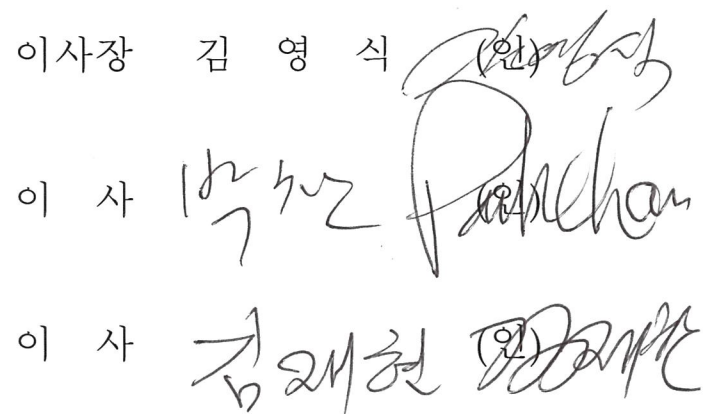 이사장 김 영 식 (인)
이 사 박찬 (인) Park Chan
이 사 김재현 (인)